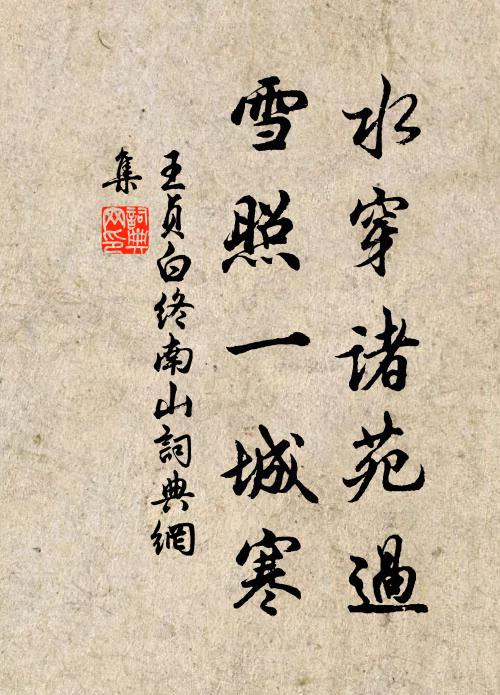 水穿諸苑過
雪照一城寒
王貞白終南山詞典網
集
詞典網印